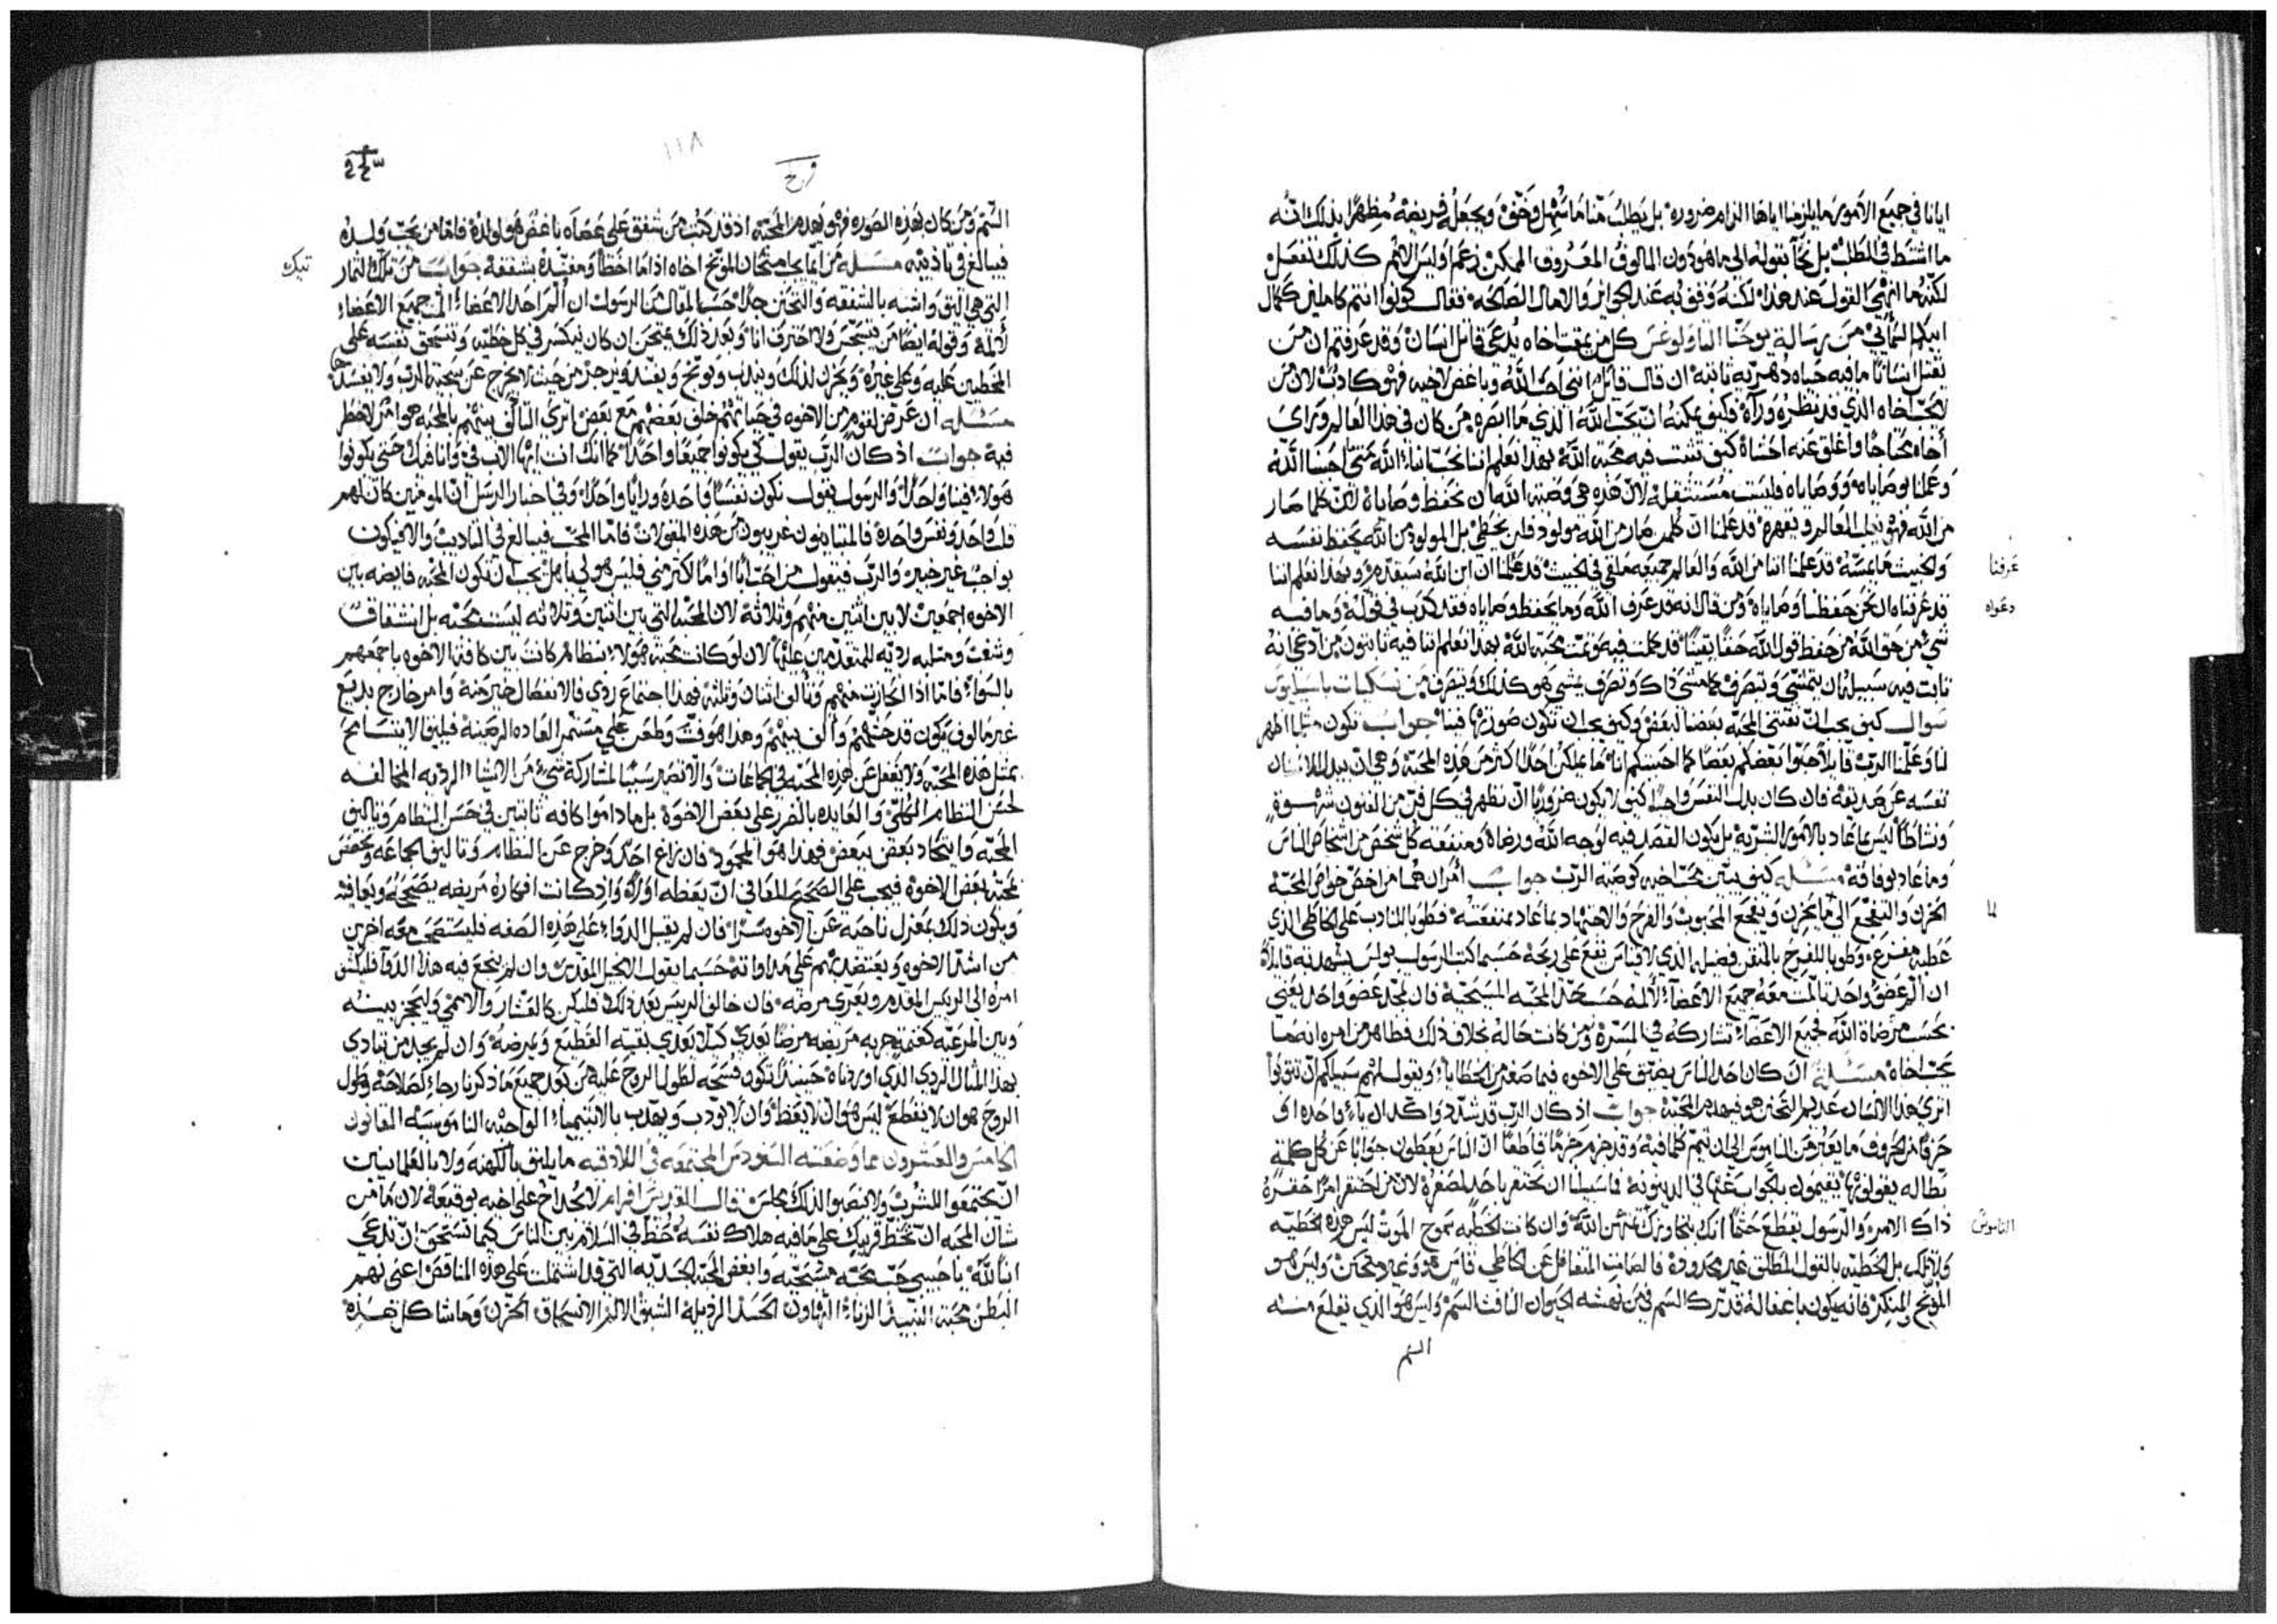 ايانا في جميع الامور ما يلزمنا اياها الزام ضروره بل يطلب منا ما سهل وخف ويجعل فريضه مظهرا بذلك انه
ما اشتط في الطلب بل نحا بقوله الى ما هو دون المالوف المعروف الممكن زعم وليس الامم كذلك تفعل
لكنه ما انتهى القول عند هذا لكنه وفق به عند الجوائز والاعمال الصالحه فقال كونوا انتم كاملين ككمال
ابيكم السمائي من رسالة يوحنا الثاولوغس كل من يمقت اخاه يدعى قاتل انسان وقد عرفتم ان من
يقتل انسانا ما فيه حياه دهريه ثابته ان قال قايل انني احب الله وباغض لاخيه فهو كاذب لان من
لا يحب اخاه الذي قد ينظره ورآه فكيف يمكنه ان يحب الله الذي ما ابصره من كان في هذا العالم وراى
أخاه محتاجا واغلق عنه احشاه كيف تثبت فيه محبة الله بهذا نعلم اننا نحب ابناء الله متى احببنا الله
وعملنا بوصاياه ووصاياه فليست مستثقله لان هذه هي وصية الله ان نحفظ وصاياه لان كلما صار
من الله فهو يغلب العالم ويقهره قد علمنا ان كلمن صار من الله مولود فلن يخطي بل المولود من الله يحفظ نفسه
والخبيث ما يمسه قد علمنا اننا من الله والعالم جميعه ملقى في الخبيث قد علمنا ان ابن الله سيقدم وبهذا نعلم اننا
عرفنا
قد عرفناه ان نحن حفظنا وصاياه ومن قال انه قد عرف الله وما يحفظ وصاياه فقد كذب في قوله وما فيه
دعواه
شي من حق الله من حفظ قول الله حقا يقينا قد كملت فيه وتمت محبة الله بهذا نعلم اننا فيه ثابتون من ادعى انه
ثابت فيه سبيله ان يتمشى ويتصرف كما مشى ذاك وتصرف يمشي هو كذلك ويتصرف من نسكيات باسيليوس
سوال كيف يجب ان نقتني المحبه بعضنا لبعض وكيف يجب ان تكون صورتها فينا جواب تكون مثلما اظهر
لنا وعلمنا الرب قايلا احبوا بعضكم بعضا كما احببتكم انا ما يملك احدا اكثر من هذه المحبة وهي ان يبدل الانسان
نفسه عن صديقه فان كان بدل النفس واجبا كيف لا يكون ضروريا ان نظهر في كل فن من الفنون شهوة
ونشاطا ليس بما عاد بالامور البشريه بل يكون القصد فيه لوجه الله ورضاه ومنفعة كل شخص من اشخاص الناس
وما عاد بوفاقه مسئله كيف يبين محب اخيه كوصية الرب جواب أمران هما من اخص خواص المحبه
الحزن والتفجع الى ما يحزن ويفجع المحبوب والفرح والاجتهاد بما عاد بمنفعته فطوبا للنادب على الخاطي الذي
لما
عطبه مفزع وطوبا للفرح بالمتقن فضيله الذي لا قياس تقع على ربحه حسبما كتب الرسول بولس يشهد به قايلا
ان ألم عضو واحد تألمت معه جميع الاعضا لألمه حسب حد المحبه المسيحيه فان مجد عضو واحد يعني
بحسب مرضاة الله فجميع الاعضاء تشاركه في المسرة ومن كانت حاله بخلاف ذلك فظاهر من امره انه ما
يحب اخاه مسئله ان كان احد الناس يضيق على الاخوه فيما صغر من الخطايا ويقول لهم سبيلكم ان تتوبوا
اترى هذا الانسان عديم التحنن هو ويهدم المحبة جواب اذ كان الرب قد شدد واكد ان ياء واحده او
حرفا من الحروف ما يعبر من الناموس الى ان يتم كلما فيه وقد جزم جزما قاطعا ان الناس يعطون جوابا عن كل كلمة
بطاله يقولونها يقيمون بالجواب عنها في الدينونه فما سبيلنا ان نحتقر باحد لصغره لان من احتقر امرا حقره
ذاك الامر والرسول يقطع حتما انك بتجاوزك تهين الله وان كانت الخطيه سموح الموت ليس هذه الخطيه
الناموس
ولا تلك بل الخطيه بالقول المطلق غير محدوده فالصامت المتغافل عن الخاطي قاس هو وغير متحنن وليس هو
الموبخ والمنكر فانه يكون باغفاله قد ترك السم في من نهشه الحيوان النافث السم وليس هو الذي يقلع منه
السم
١١٨
السم ومن كان بهذه الصوره فهو يهدم المحبه اذ قد كتب من شفق على عصاه باغض هو لولده فاما من يحب ولده
فيبالغ في تاديبه مسئله من ايما يجب امتحان الموبخ اخاه اذا ما اخطأ ومفنده بشفقه جواب من تلك الثمار
تيك
التي هي اليق واشبه بالشفقه والتحنن جدا حسبما المقال من الرسول ان ألم احد الاعضاء ألمت جميع الاعضاء
لألمه وقوله ايضا من يتسجس ولا احترق انا وبعد ذلك يمتحن ان كان ينكسر في كل خطيه وتنسحق نفسه على
المخطيين عليه وعلى غيره ويحزن لذلك ويندب ويوبخ ويفند ويزجر من حيث لا يخرج عن سجية الرب ولا يفسدها
مسئله ان عرض لقوم من الاخوه في حياتهم خلف بعضهم مع بعض اترى التآلف بينهم بالمحبه هو امر لا خطر
فيه جواب اذ كان الرب يقول كي يكونوا جميعا واحدا كما انك انت ايها الاب في وانا فيك حتى يكونوا
هولاء فينا واحدا والرسول يقول نكون نفسا واحده ورايا واحدا وفي اخبار الرسل ان المومنين كان لهم
قلب واحد ونفس واحدة فالمتباينون غريبون من هذه المقولات فاما المحب فيبالغ في التاديب والا فيكون
بواجب غير خبير والرب فيقول من احب ابا او اما اكثر مني فليس هو لي باهل يجب ان تكون المحبه فايضه بين
الاخوه اجمعين لا بين اثنين منهم وثلاثة لان المحبة التي بين اثنين وثلاثه ليست محبه بل انشقاق
وشغب ومثلبه رديه للمتقدمين عليها لان لو كانت محبة هولاء بنظام كانت بين كافة الاخوه باجمعهم
بالسواء فاما اذا انحازت منهم وتالف اثنان وثلثة فهذا اجتماع ردي فالانفصال خير منه وامر خارج بديع
غير مالوف يكون قد حثهم وألف بينهم وهذا هو فت وطعن على مستمر العاده الرصينه فيليق الا يتسامح
بمثل هذه المحبه ولا يغفل عن هذه المحبه في الجماعات والا تصير سببا لمشاركة شيء من الاشياء الرديه المخالفه
لحسن النظام الكلي والعايده بالضرر على بعض الاخوة بل ما داموا كافه ثابتين في حسن النظام وتاليف
المحبه واتحاد بعض ببعض فهذا هو المحمود فان زاغ احد وخرج عن النظام وتاليف الجماعه ويخصص
محبته بعض الاخوه فيجب على الصحيح المعافى ان يعظه اولا واذ كانت افكاره مريضه يصححها ويعافيه
ويكون ذلك بمعزل ناحية عن الاخوه سرا فان لم يقبل الدواء على هذه الصفه فليستصحب معه اخرين
من اشد الاخوه ويعتضد بهم على مداواته حسبما يقول الانجيل المقدس وان لم ينجع فيه هذا الدوا فليكشف
امره الى الرييس المقدم ويعرى مرضه فان خالف الرييس بعد ذلك فليكن كالعشار والاممي وليحجز بينه
وبين المرعيه كغنمة جربه مريضه مرضا يعدي كيلا يعدي بقية القطيع ويمرضه وان لم يجد من يتادى
بهذا المثال الردي الذي اوردناه حينئذ تكون فسحه لطول الروح عليه من بعد جميع ما ذكرنا رجاء لصلاحه وطول
الروح هو ان لا يقطع ليس هو ان لا يعظ وان لا يودب ويهذب بالانتهاء الواجبه الناموسيه القانون
الخامس والعشرون مما وضعته السنودس المجتمعه في اللاذقيه ما يليق بالكهنه ولا بالعلمانيين
ان يجتمعوا للشرب ولا ينصبوا لذلك مجلس قال القديس افرام لا تجد اخ على اخيه بوقيعه لان ما من
شان المحبه ان تخط قريبك على ما فيه هلاك نفسه حفظ في السلام بين الناس كيما تستحق ان تدعى
ابنا لله يا حبيبي حب محبه مسيحيه وابغض المحبه الجسديه التي قد اشتملت على هذه المناقص اعني نهم
البطن محبة النبيذ الزناء التهاون الحسد الرذيله الشبق الالم الانسحاق الحزن وما شاكل هذه